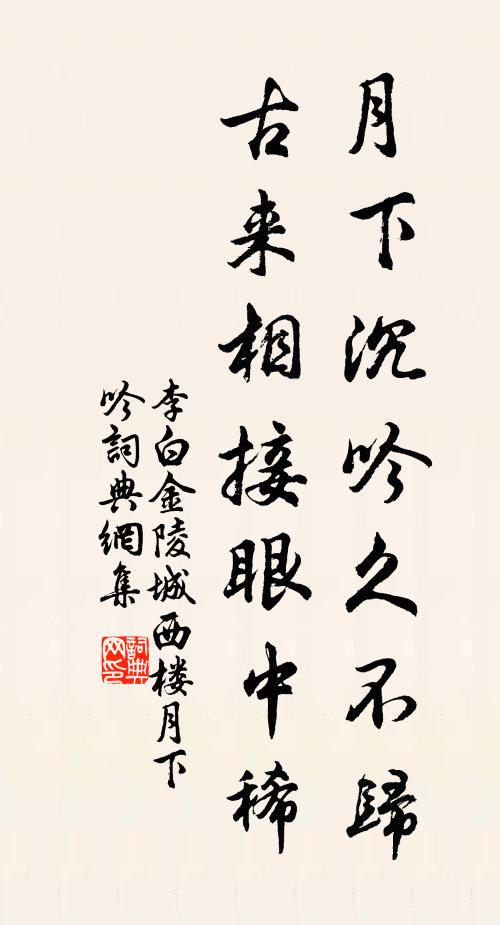 月下沉吟久不歸
古来相接眼中稀
李白金陵城西楼月下
吟詞典網集
詞典
网印